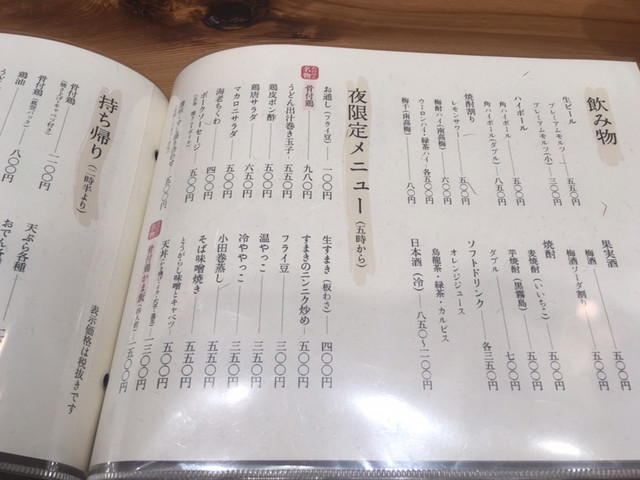 飲み物
生ビール
プレミアムモルツ 五五〇円
プレミアムモルツ(小) 三〇〇円
ハイボール
角ハイボール 五五〇円
角ハイボール(ダブル) 八五〇円
焼酎割り
レモンサワー 五五〇円
梅酎ハイ(南高梅) 六〇〇円
ウーロンハイ・緑茶ハイ 各五五〇円
梅干(南高梅) 八〇円
果実酒
梅酒 五〇〇円
梅酒ソーダ割り 五五〇円
焼酎
麦焼酎(いいちこ) 五〇〇円
芋焼酎(黒霧島) 五〇〇円
ダブル 七〇〇円
ソフトドリンク 各三五〇円
オレンジジュース
烏龍茶・緑茶・カルピス
日本酒(冷) 八五〇〜一一〇〇円
夜限定メニュー(五時から)
お通し(フライ豆) 一〇〇円
名物
骨付鶏 九八〇円
うどん出汁巻き玉子 五五〇円
鶏皮ポン酢 五〇〇円
鶏唐サラダ 六五〇円
マカロニサラダ 五〇〇円
海老ちくわ 四〇〇円
ポークソーセージ 五五〇円
生すまき(板わさ) 四〇〇円
すまきのニンニク炒め 五〇〇円
フライ豆 三〇〇円
温やっこ 三五〇円
冷ややっこ 三五〇円
小田巻蒸し 五五〇円
そば味噌焼き 五〇〇円
とうがらし味噌とキャベツ 五〇〇円
天丼 一三〇〇円
骨付鶏 一五〇〇円
持ち帰り(二時半より)
骨付鶏
骨付鶏(真空パック)
鶏油 八〇〇円
天ぷら各種
おでん各
表示価格は税抜きです